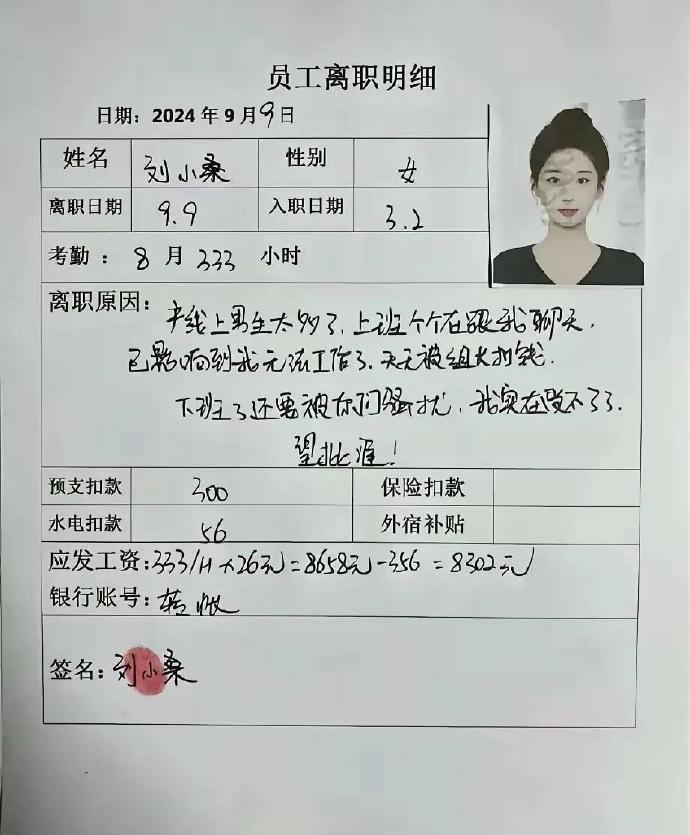 员工离职明细
日期：2024年9月9日
姓名 刘小桑 性别 女
离职日期 9.9 入职日期 3.2
考勤：8月333小时
离职原因：产线上男生太多了，上班个个在跟我聊天，
已影响到我无法工作了，天天被组长扣钱．
下班了还要被你们骚扰，我实在受不了了．
望批准！
预支扣款 300 保险扣款
水电扣款 56 外宿补贴
应发工资：333/H×26元=8658元-356=8302元
银行账号：转账
签名：刘小桑